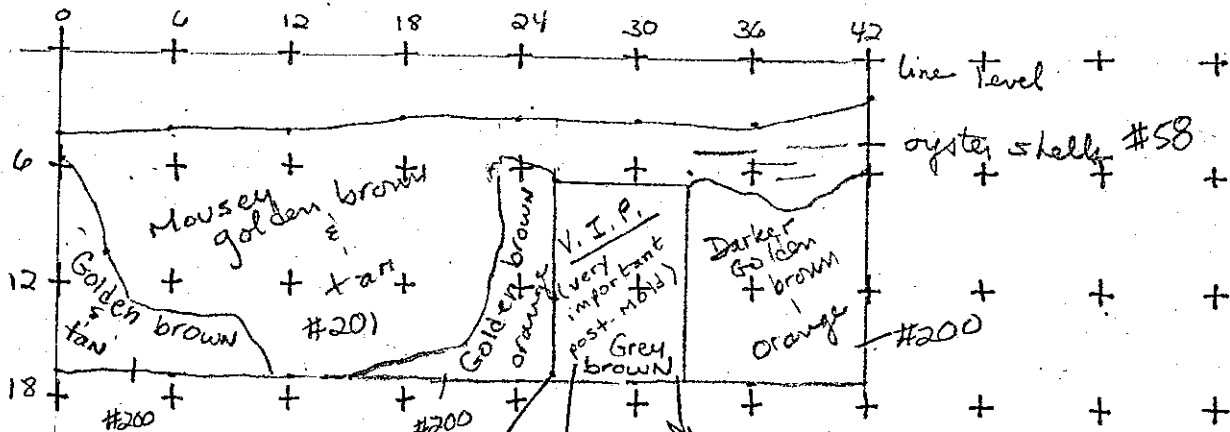 0 6 12 18 24 30 36 42
line level
oyster shells #58
6
Mousey
golden brown
&
tan
#201
Golden brown
&
tan
Golden brown
orange
V. I. P.
(very
important
post-mold)
Grey
brown
Darker
Golden
brown
orange
#200
12
18
#200
#200